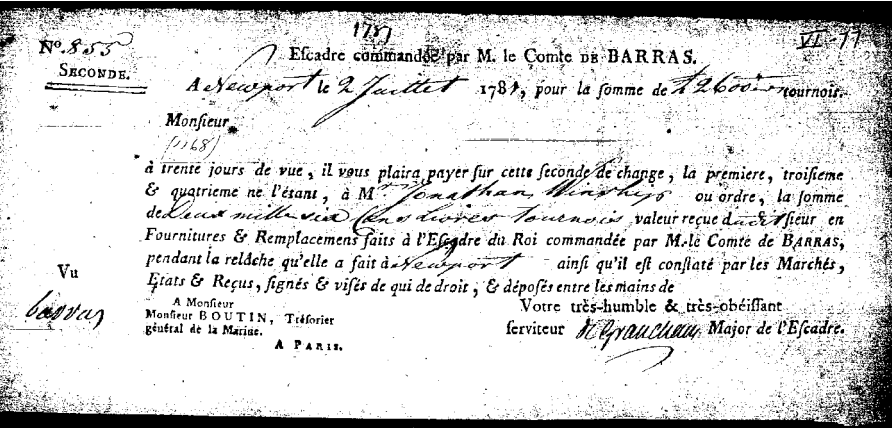 1781
VI-77
Nº. 855
SECONDE.
Eſcadre commandée par M. le Comte DE BARRAS.
A Newport le 2 Juillet 1781, pour la ſomme de 2600 tournois.
Monſieur
(1168)
à trente jours de vue, il vous plaira payer ſur cette ſeconde de change, la premiere, troiſieme
& quatrieme ne l'étant, à Mr. Jonathan Winship ou ordre, la ſomme
de Deux mille six Cens livres tournois valeur reçue dudit ſieur en
Fournitures & Remplacemens faits à l'Eſcadre du Roi commandée par M. le Comte de BARRAS,
pendant la relâche qu'elle a fait à Newport ainſi qu'il eſt conſtaté par les Marchés,
Etats & Reçus, ſignés & viſés de qui de droit, & dépoſés entre les mains de
Vu
barras
A Monſieur
Monſieur BOUTIN, Tréſorier
général de la Marine.
A PARIS.
Votre très-humble & très-obéiſſant
ſerviteur Major de l'Eſcadre.